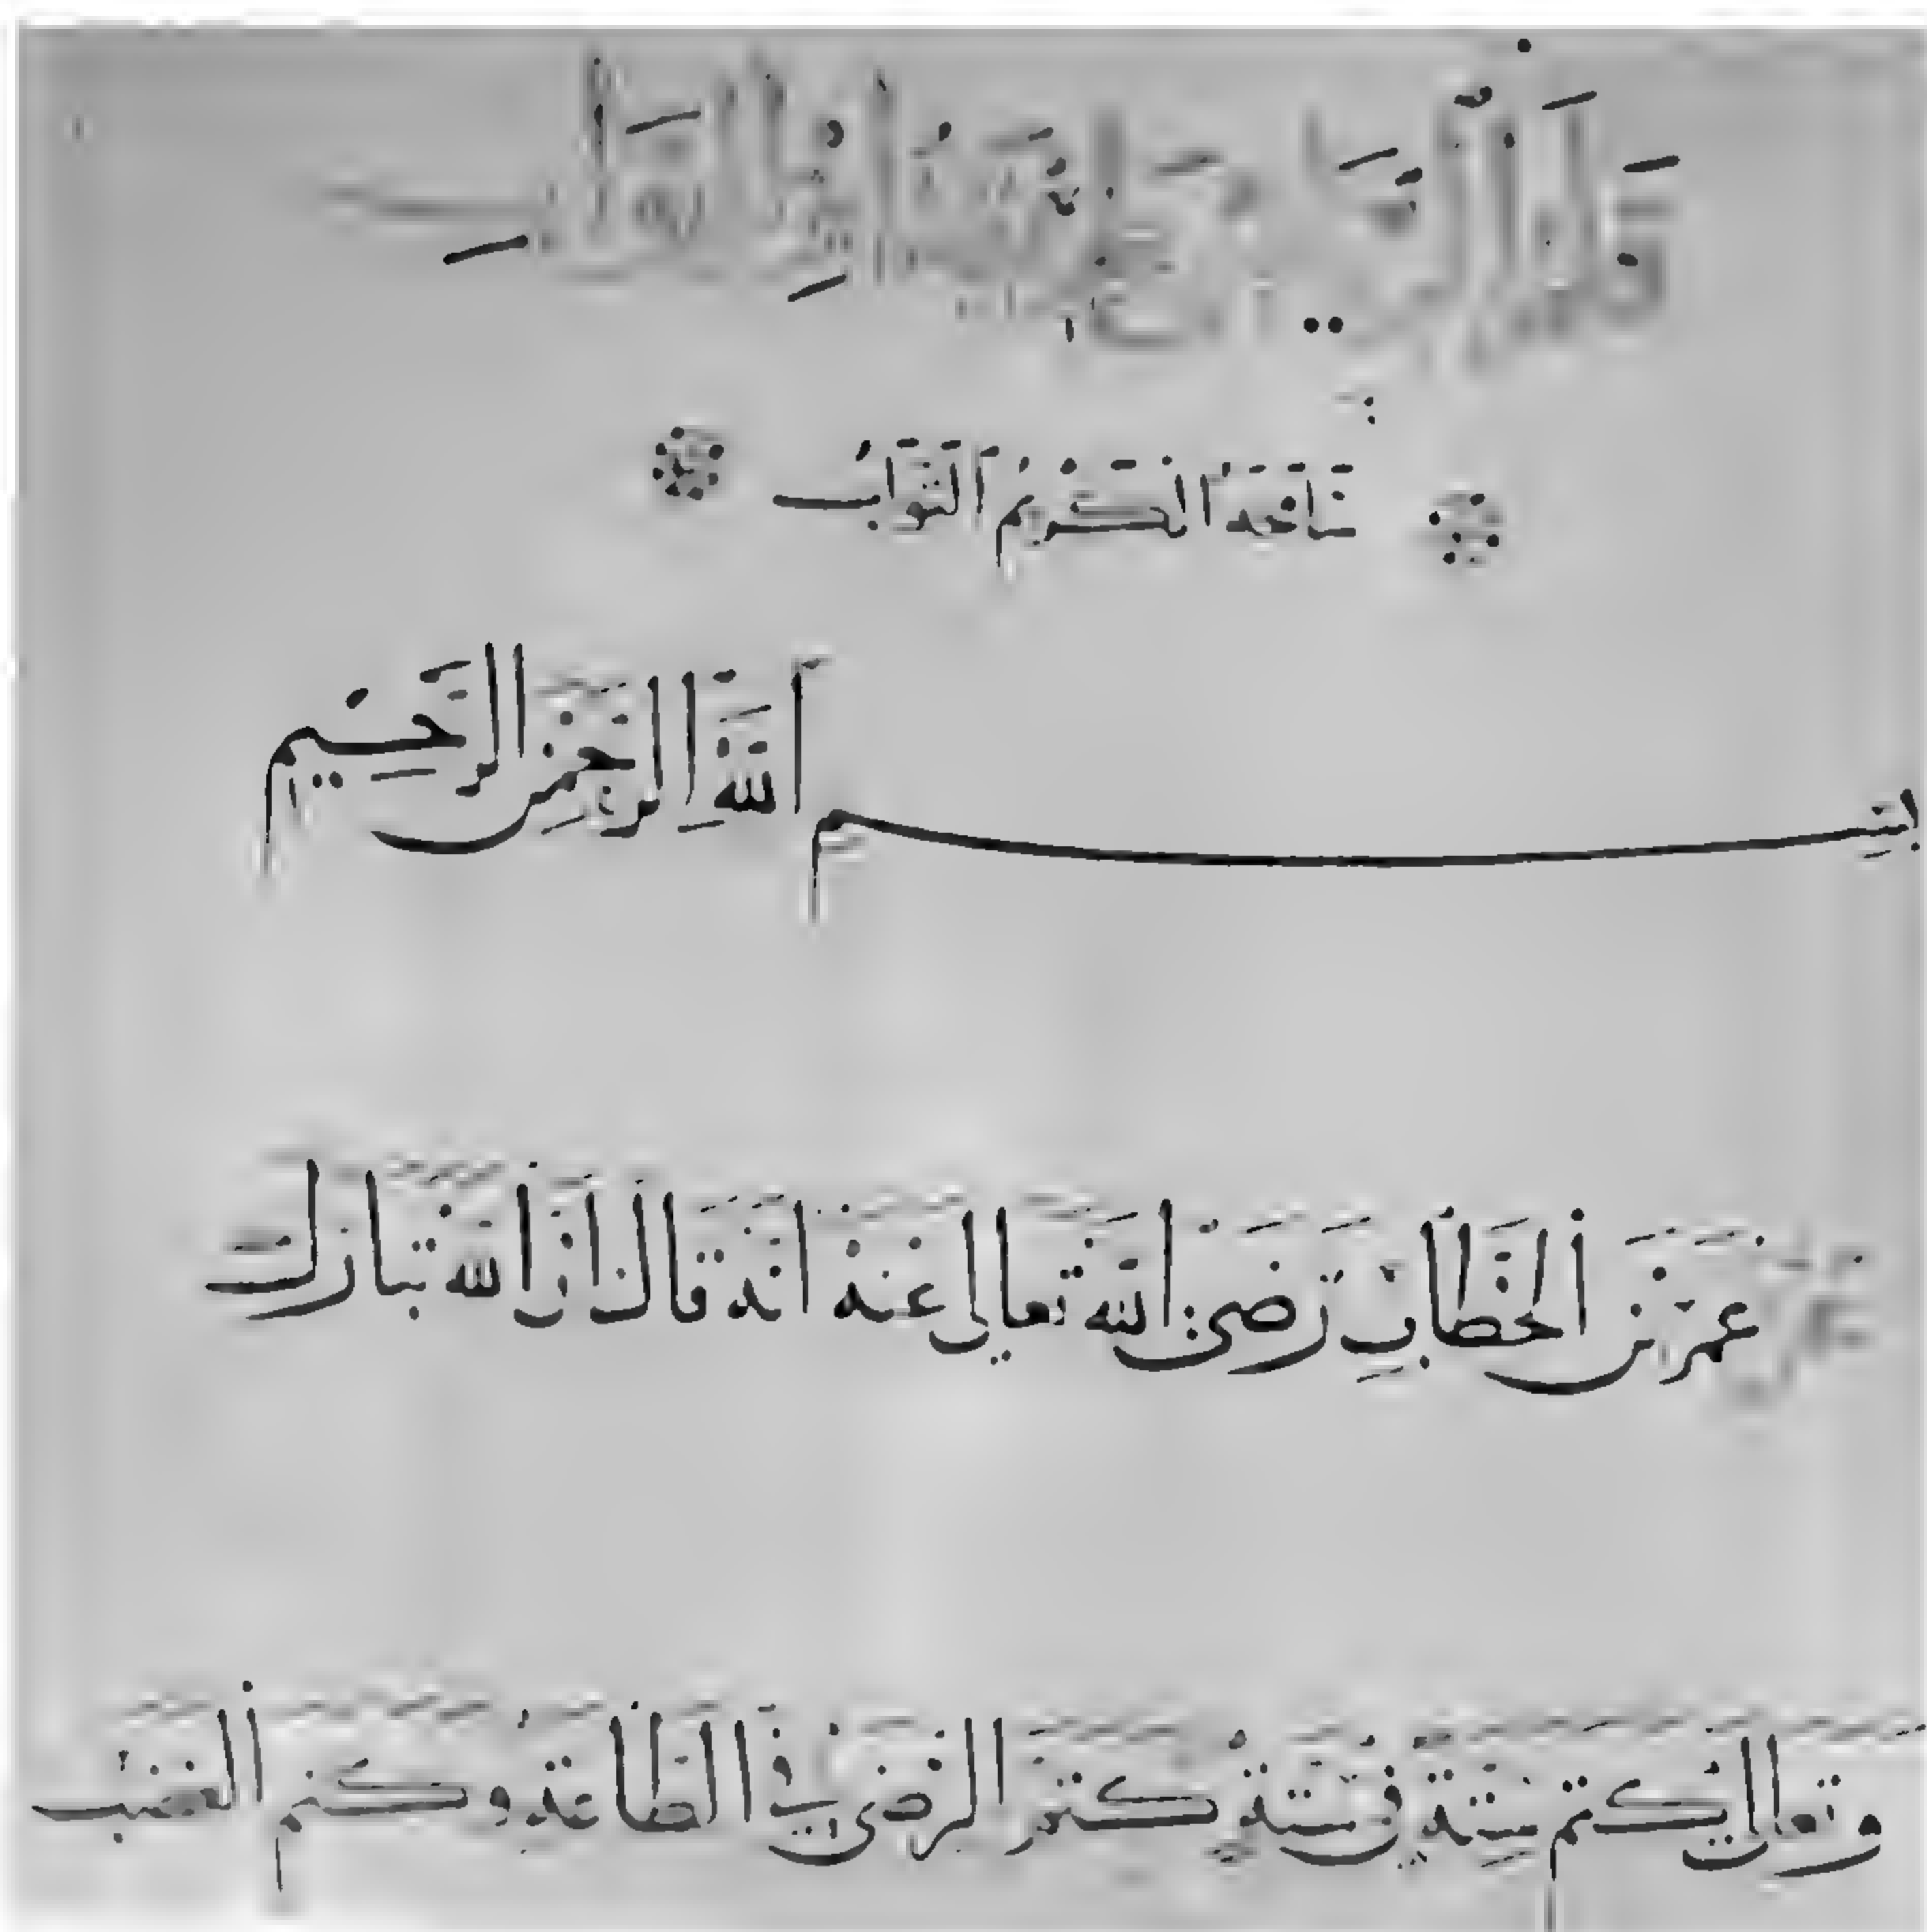 سَامَحَهُ الْكَرِيمُ التَّوَّابُ
بِسْمِ اللَّهِ الرَّحْمَنِ الرَّحِيمِ
عمر بن الخطاب رضي الله تعالى عنه انه قال ان الله تبارك
وتعالى كتم ستة في ستة كتم الرضى في الطاعة وكتم الغضب